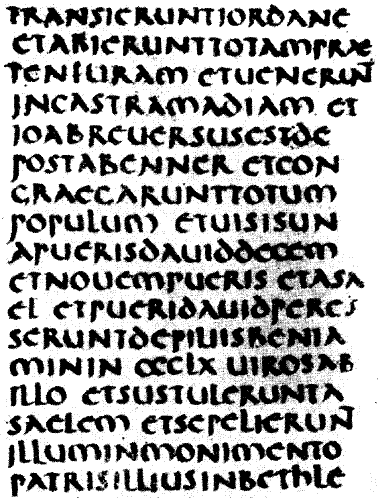 TRANSIERUNTIORDANE
ETABIERUNTTOTAMPRAE
TENSURAM ETUENERUN̄
INCASTRAMADIAM ET
IOABREUERSUSESTDE
POSTABENNER ETCON
GRAECARUNTTOTUM
POPULUM ETUISISUN
APUERISDAUIDDECEM
ETNOUEMPUERIS ETASA
EL ETPUERIDAUIDPERES
SERUNTDEFILIISBENIA
MININ CCCLX UIROSAB
ILLO ETSUSTULERUNTA
SAELEM ETSEPELIERUN̄
ILLUMINMONIMENTO
PATRISILLIUSINBETHLE